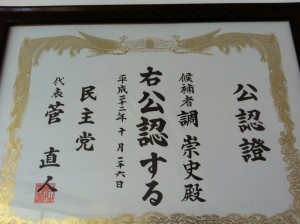 公認證
候補者 調 崇史殿
右公認する
平成二十二年 十月 二十六日
民主党
代表 菅 直人